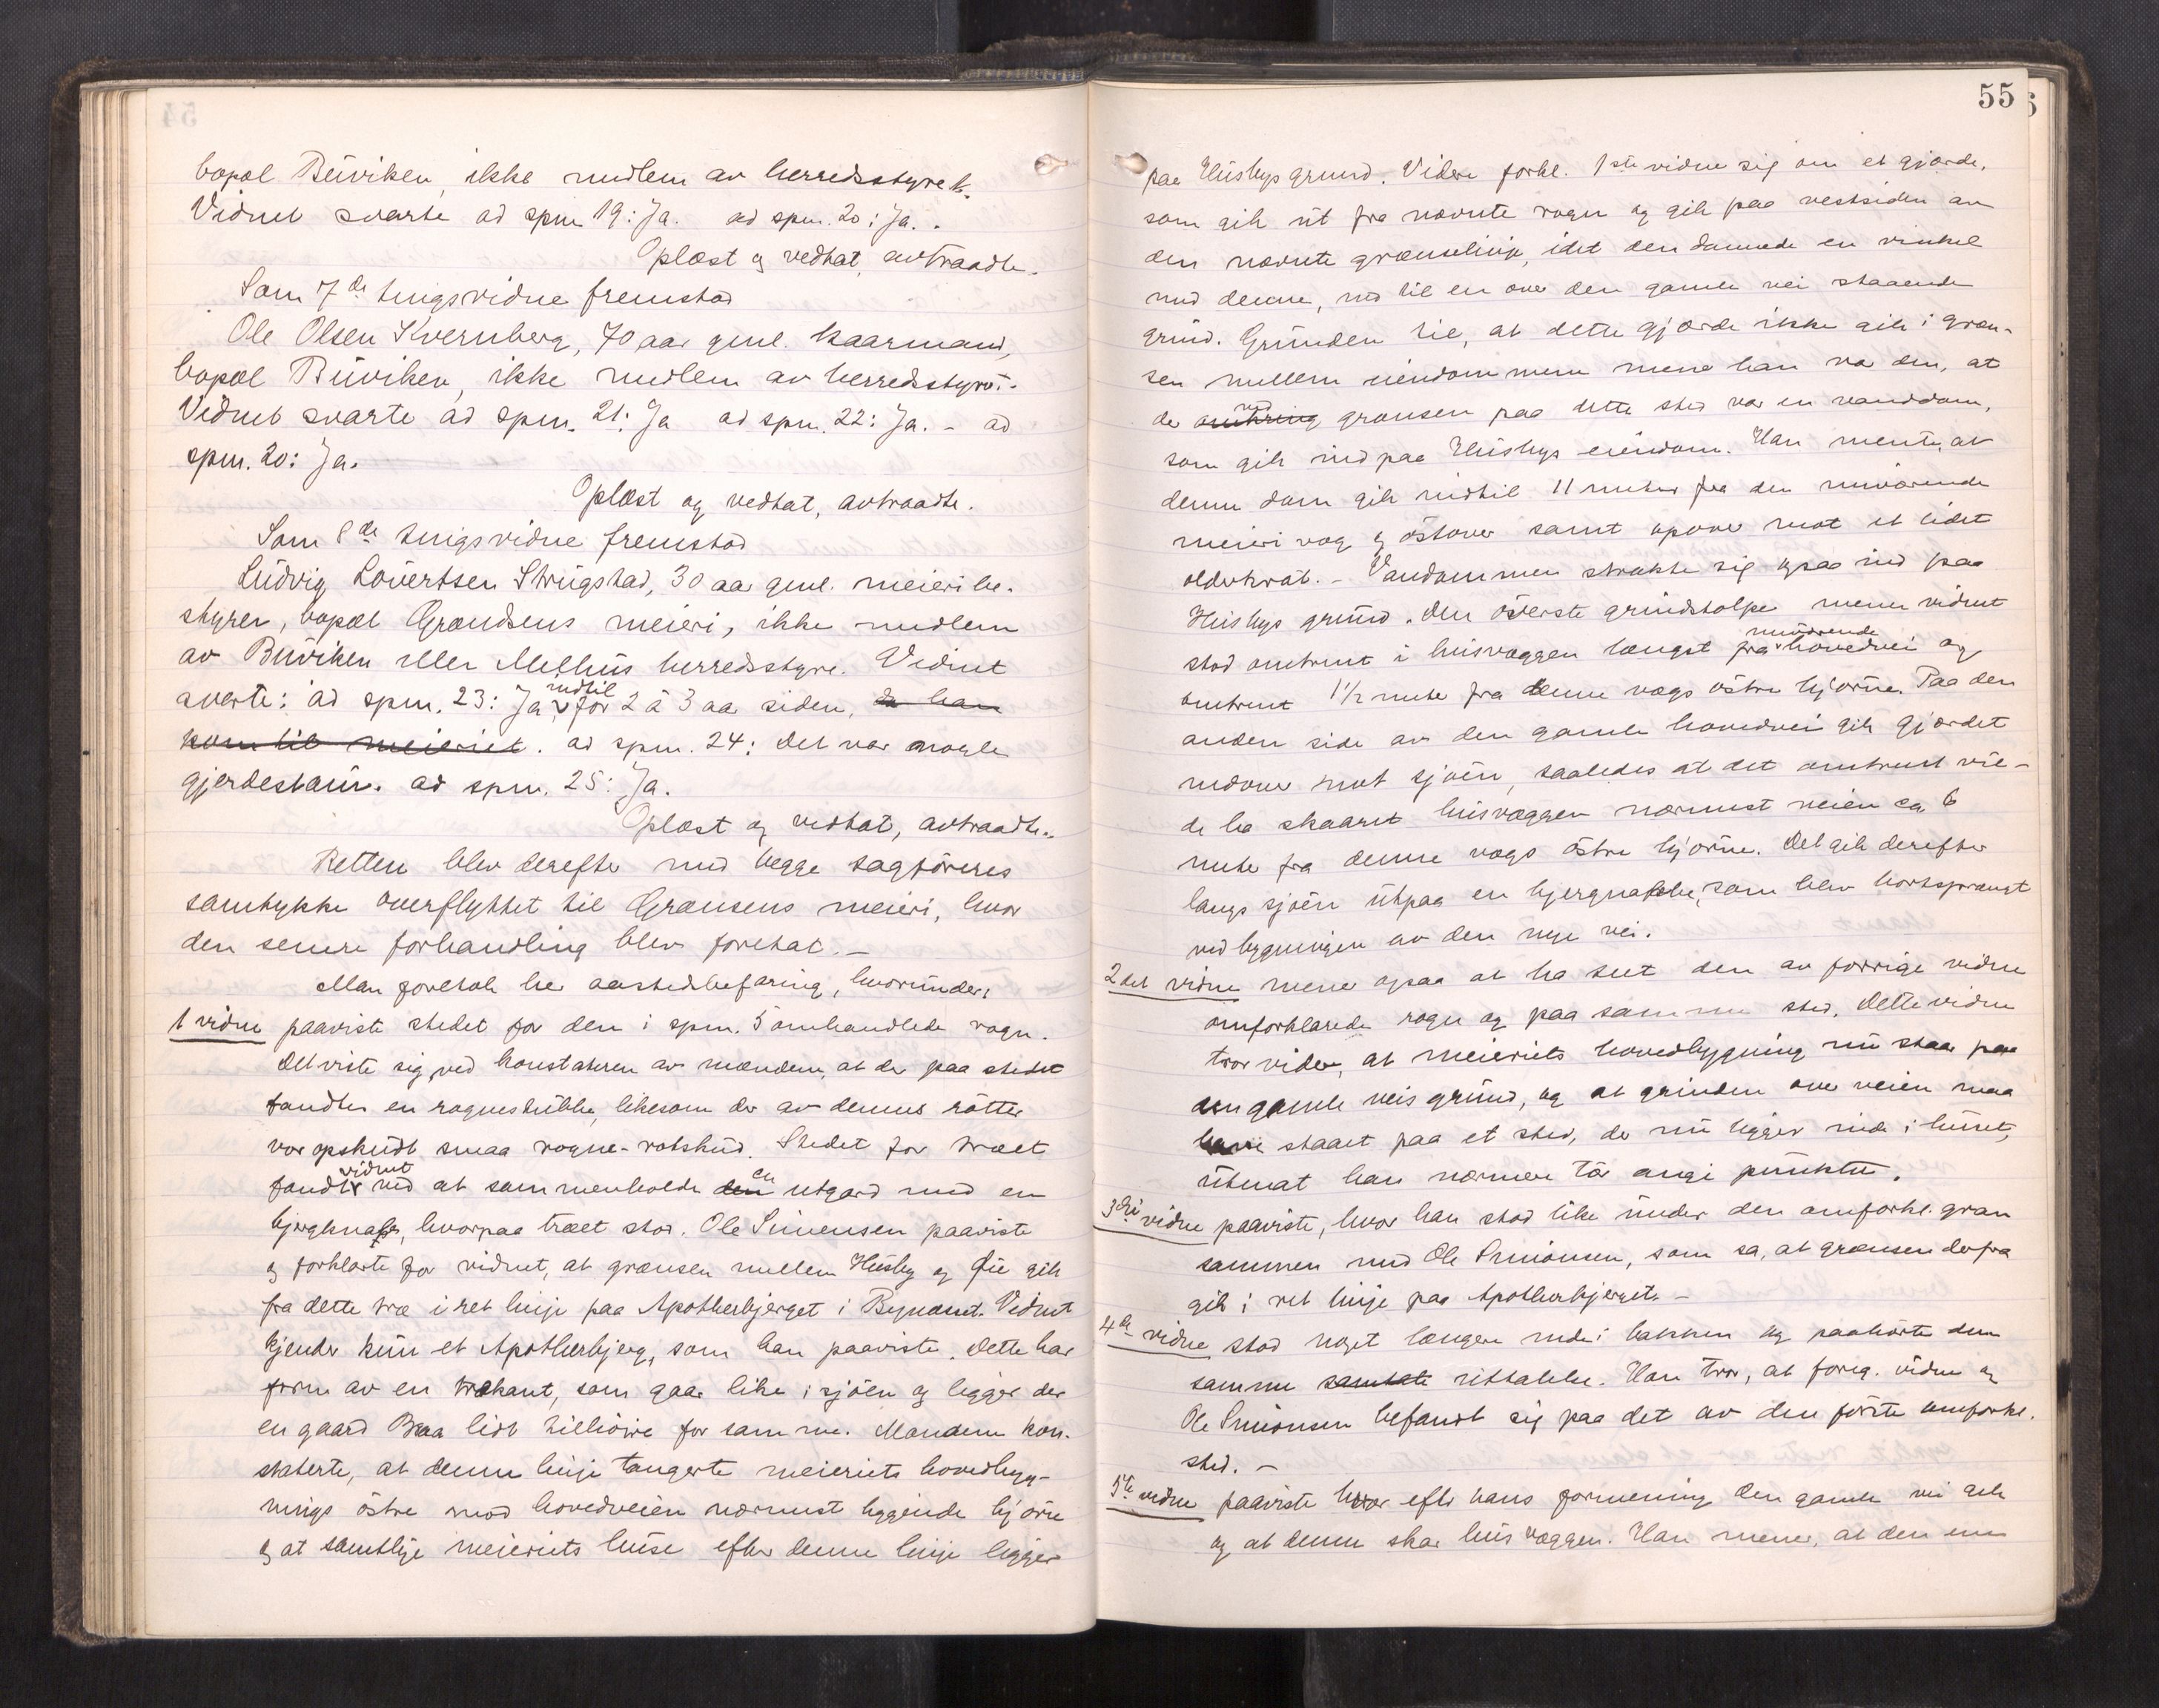 bopæl Büviken, ikke medlem av herredsstyret.
Vidnet svarte ad spm 19: Ja. ad spm. 20: Ja. .
Oplæst og vedtat, avtraadte.
Som 7de tingsvidne fremstod
Ole Olsen Kvernberg, 70 aar gml. kaarmand,
bopæl Büviken, ikke medlem av herredsstyret.
Vidnet svarte ad spm. 21: Ja ad spm. 22: Ja. - ad
spm. 20: Ja.
Oplæst og vedtat, avtraadte.
Som 8de tingsvidne fremstod
Ludvig Lovertsen Strugstad, 30 aar gml. meieribe-
styrer, bopæl Grændsens meieri, ikke medlem
av Büviken eller Melhus herredsstyre. Vidnet
svarte: ad spm. 23: Ja indtil for 2 à 3 aar siden, da han
kom til meieriet. ad spm. 24: Det var nogle
gjerdestaur. ad spm. 25: Ja.
Oplæst og vedtat, avtraadte.
Retten blev derefter med begge sagføreres
samtykke overflyttet til Grænsens meieri, hvor
den senere forhandling blev foretat. -
Man foretok her aastedsbefaring, hvorunder:
1 vidne paaviste stedet for den i spm. 5 omhandlede rogn.
Det viste sig ved konstateren av mændene, at der paa stedet
fandtes en rognestubbe, likesom der av dennes røtter
var opskudt smaa rogne-rotskud. Stedet for træet
fandt vidnet ved at sammenholde en utgard med en
bjergknabe, hvorpaa træet stod. Ole Simensen paaviste
og forklarte for vidnet, at grænsen mellem Husby og Øie gik
fra dette træ i ret linje paa Apothekerbjerget i Bynæsset. Vidnet
kjender kun et Apothekerbjerg, som han paaviste. Dette har
form av en trekant, som gaar like i sjøen og ligger der
en gaard Braa lidt tilhøire for samme. Mændene kon-
staterte, at denne linje tangerte meieriets hovedbyg-
nings østre mod hovedveien nærmest liggende hjørne
og at samtlige meieriets huse efter denne linje ligger
55
paa Husbys grund. Videre forkl. 1ste vidne sig om et gjærde,
som gik ut fra nævnte rogn og gik paa vestsiden av
den nævnte grænselinje, idet den dannede en vinkel
med denne, ned til en over den gamle vei staaende
grind. Grunden til, at dette gjærde ikke gik i græn-
sen mellem eiendommene mener han var den, at
der omkring ved grænsen paa dette sted var en vanddam,
som gik ind paa Husbys eiendom. Han mente, at
denne dam gik indtil 11 meter fra den nuværende
meieri væg og østover samt opover mot et lidet
olderkrat. - Vanddammen strakte sig ogsaa ind paa
Husbys grund. Den øverste grindstolpe mener vidnet
stod omtrent i husvæggen længst fra nuværende hovedvei og
omtrent 1½ meter fra denne vægs østre hjørne. Paa den
anden side av den gamle hovedvei gik gjærdet
nedover mot sjøen, saaledes at det omtrent vil-
de ha skaaret husvæggen nærmest veien ca 6
meter fra denne vægs østre hjørne. Det gik derefter
langs sjøen utpaa en bjergnabbe, som blev bortsprængt
ved bygningen av den nye vei.
2det vidne mener ogsaa at ha seet den av forrige vidne
omforklarede rogn og paa samme sted. Dette vidne
tror videre, at meieriets hovedbygning nu staar paa
den gamle veis grund, og at grinden over veien maa
have staaet paa et sted, der nu ligger inde i huset,
utenat han nærmere tør angi punktet.
3die vidne paaviste, hvor han stod like under den omforkl. gran
sammen med Ole Simonsen, som sa, at grænsen derfra
gik i ret linje paa Apothekerbjerget. -
4de vidne stod noget længere nede i bakken og paahørte den
samme samtale uttalelse. Han tror, at foreg. vidne og
Ole Simonsen befandt sig paa det av den første omforkl.
sted. -
5te vidne paaviste hvor efter hans formening den gamle vei gik
og at denne skar husvæggen. Han mener, at den ene